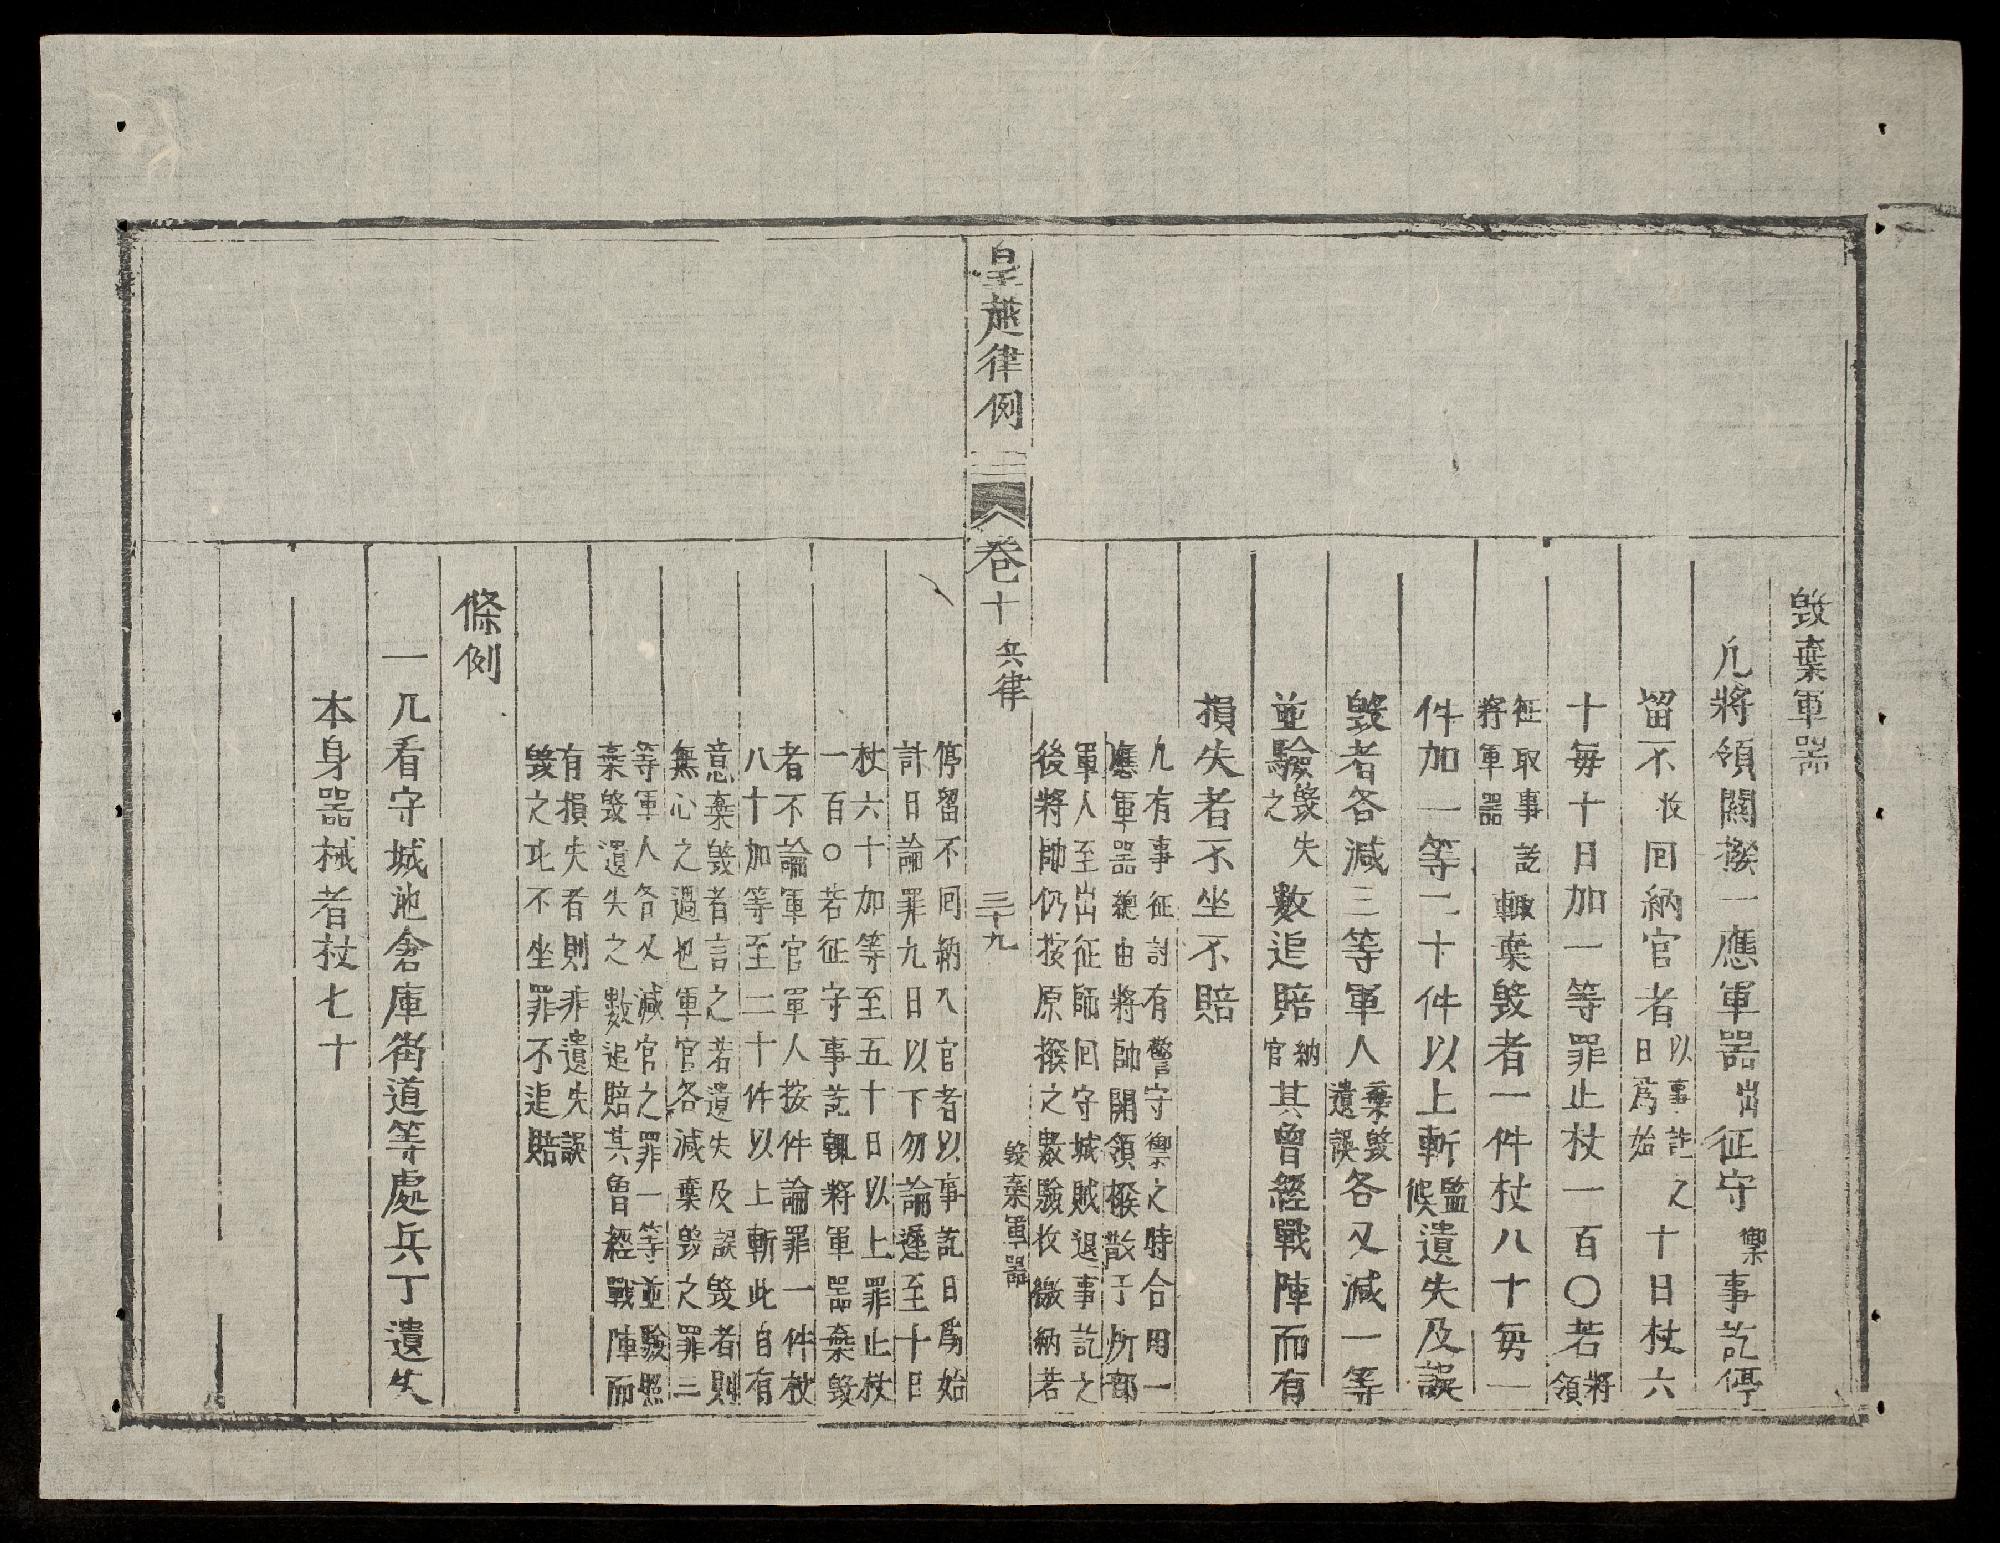 毀棄軍器
凢將領關撥一應軍器出征守禦事訖停
留不收回納官者以事訖之日爲始十日杖六
十每十日加一等罪止杖一百〇若將領
征取事訖將軍器輙棄毀者一件杖八十每一
件加一等二十件以上斬監候遺失及誤
毀者各減三等軍人棄毀遺誤各又減一等
並驗毀失之數追賠納官其曾經戰陣而有
損失者不坐不賠
凢有事征討有警守禦之時合用一
應軍器䋣由將帥開領撥散于所部
軍人至出征師回守城賊退事訖之
後將帥仍按原撥之數驗收繳納若
皇越律例
卷十 兵律
三十九
毀棄軍器
停留不囘納入官者以事訖日爲始
計日論罪九日以下勿論遲至十日
杖六十加等至五十日以上罪止杖
一百〇若征守事訖輙將軍器棄毀
者不論軍官軍人按件論罪一件杖
八十加等至二十件以上斬此自有
意棄毀者言之若遺失及誤毀者則
無心之過也軍官各減棄毀之罪三
等軍人各又減官之罪一等並驗照
棄毀遺失之數追賠其曾經戰陣而
有損失者則非遺失誤
毀之比不坐罪不追賠
條例
一凢看守城池倉庫街道等處兵丁遺失
本身器械者杖七十